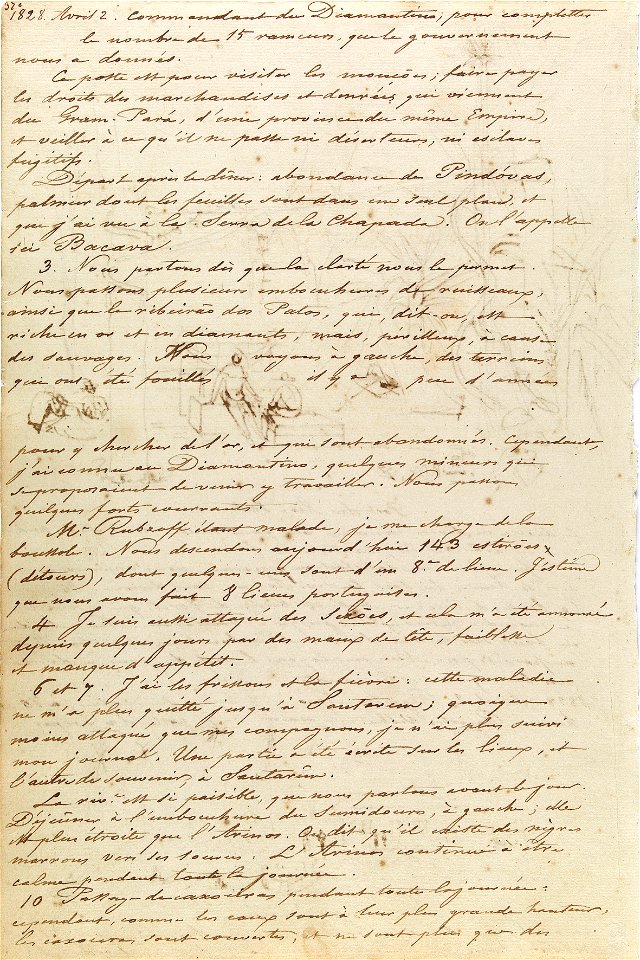 1828. Avril 2. Commandant du Diamantino; pour completter
le nombre de 15 rameurs, que le gouvernement
nous a donnés.
Ce poste est pour visiter les monções; faire payer
les droits des marchandises et denrées, qui viennent
du Gram-Pará, d'une province du même Empire,
et veiller à ce qu'il ne passe ni déserteurs, ni esclaves
fugitifs.
Départ après le dîner: abondance de Pindóvas,
palmier dont les feuilles sont dans un seul plan et
que j'ai vu à la Serra de la Chapada. On l'appelle
ici Bacava.
3. Nous partons dès que la clarté nous le permet.
Nous passons plusieurs embouchures de ruisseaux,
ainsi que le ribeirão dos Patos, qui, dit-on, est
riche en or et en diamants, mais, périlleux, à cause
des sauvages. Nous voyons à gauche, des terreins
que ont été fouillés il y a peu d'années
pour y chercher de l'or, et qui sont abandonnés. Cependant,
j'ai connu au Diamantino, quelques mineurs qui
se proposaient de venir y travailler. Nous passons
quelques forts courrants.
Mr. Rubzoff étant malade, je me charge de la
boussole. Nous descendons aujourd'hui 143 estirões
(détours), dont quelques-uns sont d'un 8.e de lieue. J'estime
que nous avons fait 8 lieues portugaises.
4 Je suis aussi attaqué des Sezões, et cela m'a été annoncé
depuis quelques jours par des maux de tête, faiblesse
et manque d'appétit.
6 et 7. J'ai les frissons et la fièvre: cette maladie
ne m'a plus quitté jusqu'à Santarem; quoique
moins attaqué que mes compagnons, je n'ai plus suivi
mon journal. Une partie a été écrite sur les lieux, et
l'autre de souvenir, à Santarem.
La riv.e est si paisible, que nous partons avant le jour.
Déjeuner à l'embouchure du Sumidouro, à gauche; elle
est plus étroite que l'Arinos. On dit qu'il existe des nègres
marrons vers ses sources. L'Arinos continue à être
calme pendant toute la journée.
10 Passage de caxoeiras pendant toute la journée:
cependant, comme les eaux sont à leur plus grande hauteur,
les caxoeiras sont couvertes, et ne sont plus que des